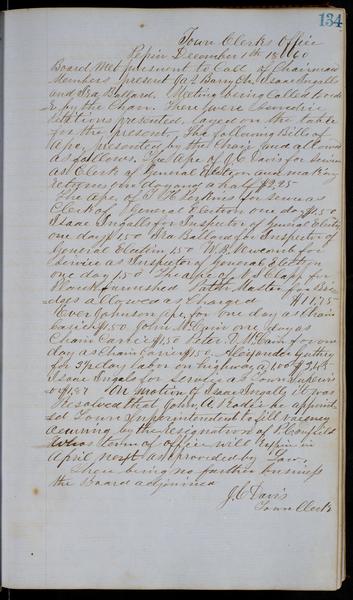 134
Town Clerks Office
Pepin December 1th 1860
Board Met pursuent to Call of Chairman
Members present Jas Barry Ch. Isaac Ingalls
and Ira Ballard. Meeting being Called to ord
er by the Chair. There were Sundrie
Petitions presented, layed on the table
for the present, The following Bills of
Apc, presented by the Chair and allowed
as follows. The Apc of J C Davis for servis
as Clerk of General Election and making
Returns one day and a half $2.25
The Apc, of for servis as
Clerk of General Election one day $1.50
Isaac Ingalls for Inspector of General Election
one day $1.50 Ira Ballard as Inspector of
General Election 1.50 W. B. Newcomb for
Service as Inspector of General Election
one day 1.50 The Apc of Clapp for
Plank furnished Path Master for Bri
dges allowed as Charged $11.75
Ever Johnson Apc, for one day as Chain
Carrier $1.50 John McGuin one day as
Chain Carrier $1.50 Peter McCain for one
day as Chain Carrier $1.50. Alexander Guthry
for day labor on highway
Isaac Ingals for Service as Town Supervis
or On Motion of Isaac Ingalls it was
Resolved that John be appoint
ed Town Superintendent to fill vacancy
occuring by the Resignation of
whos term of office will Expire in
April next as provided by Law,
There being no further business
the Board adjourned
J. C. Davis
Town Clerk